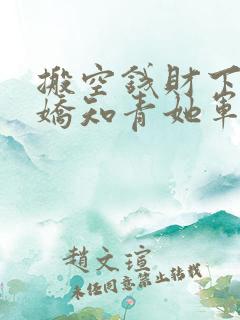 搬空錢財下
嬌知青她軍
趙文瑄
未经同意禁止转载